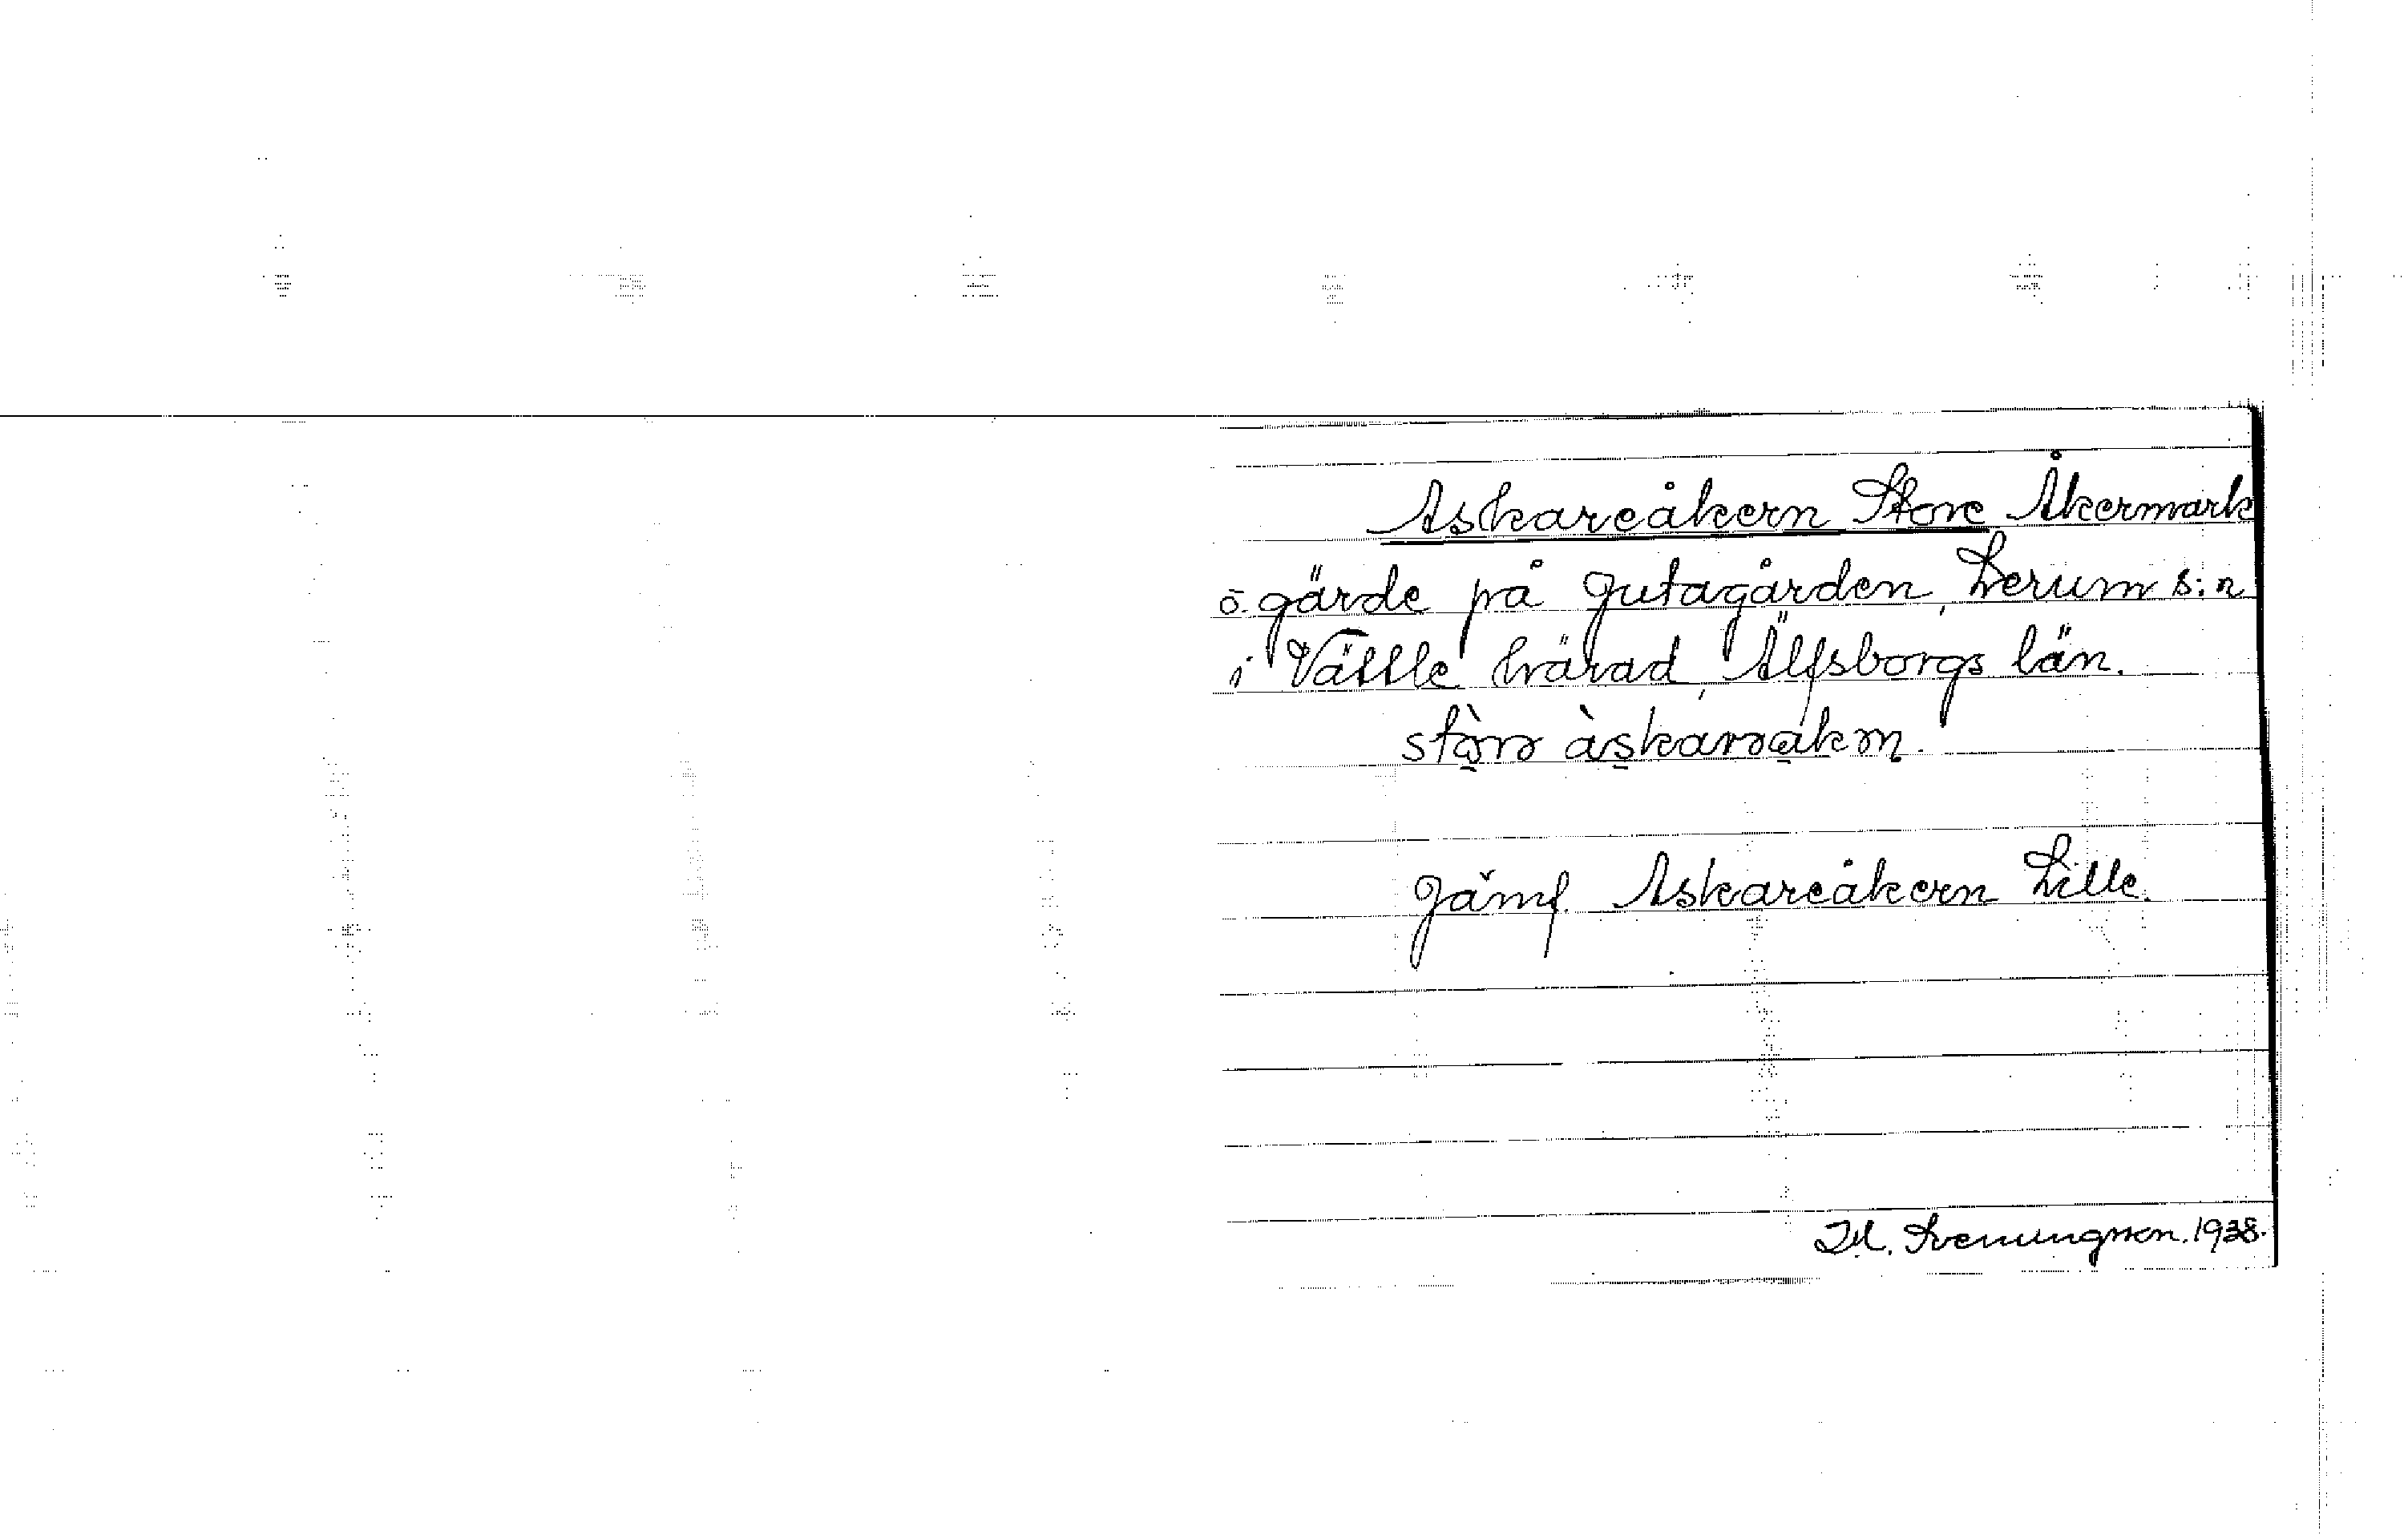 Askareåkern Store Åkermark
o. gärde på Gutagården, Lerum s:n
i Vättle härad, Älfsborgs län.
Jämf. Askareåkern Lille.
Svenungsson. 1938.